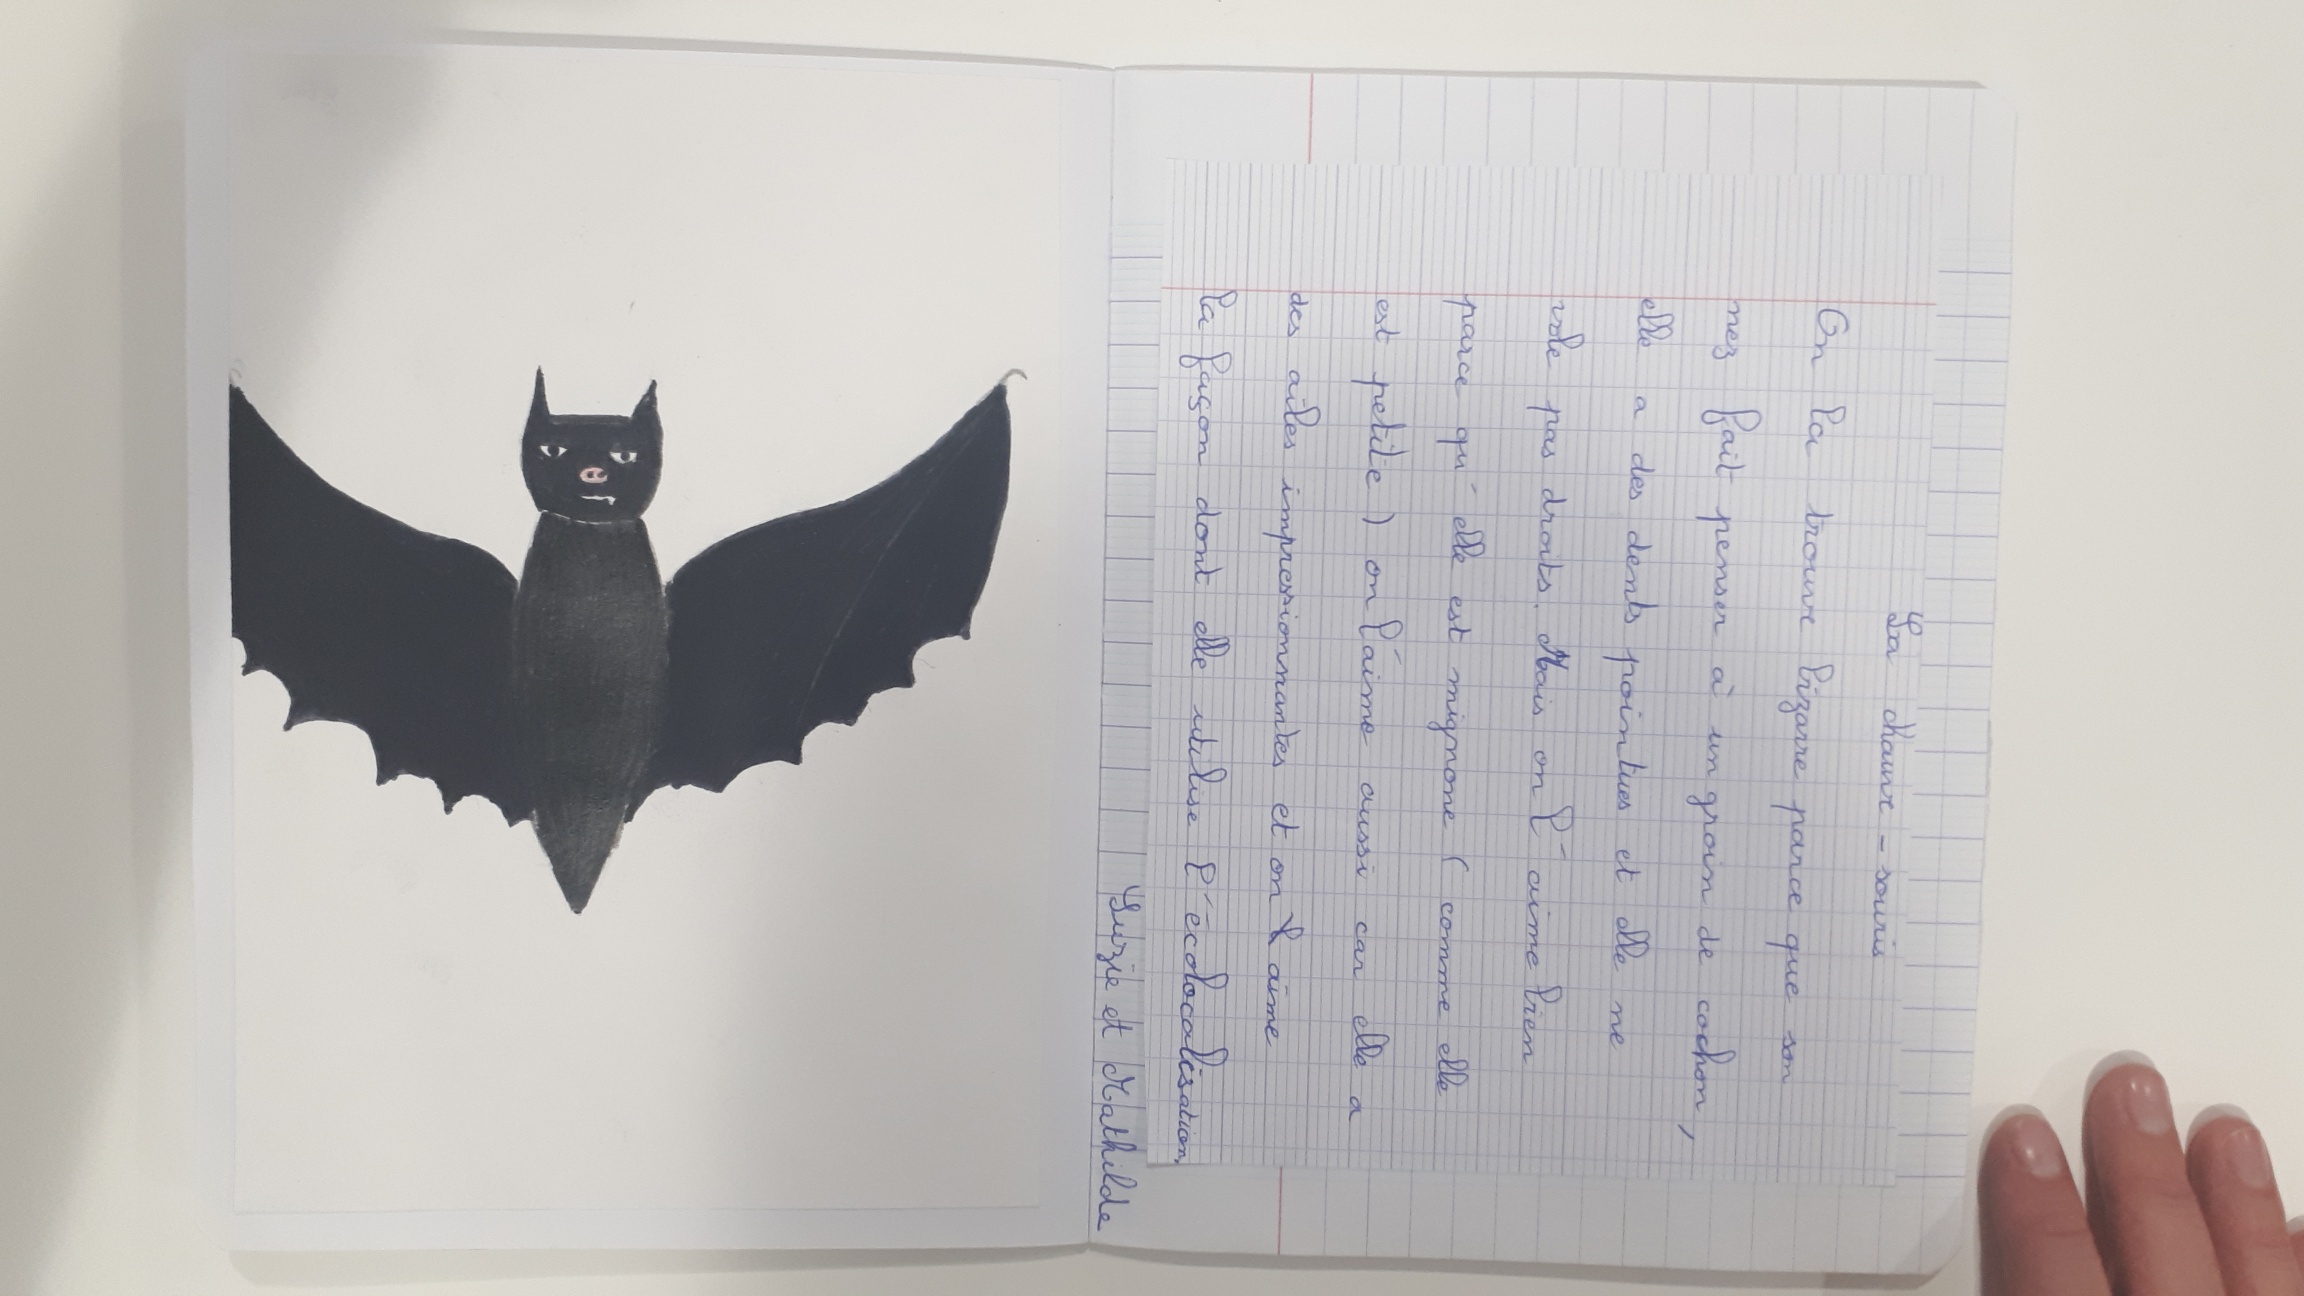 La chauve-souris
On la trouve bizarre parce que son
nez fait penser à un groin de cochon,
elle a des dents pointues et elle ne
vole pas droits. Mais on l'aime bien
parce qu'elle est mignone (comme elle
est petite) on l'aime aussi car elle a
des ailes impressionnantes et on l aime
la façon dont elle utilise l'écolocalisation.
Suzie et Mathilde